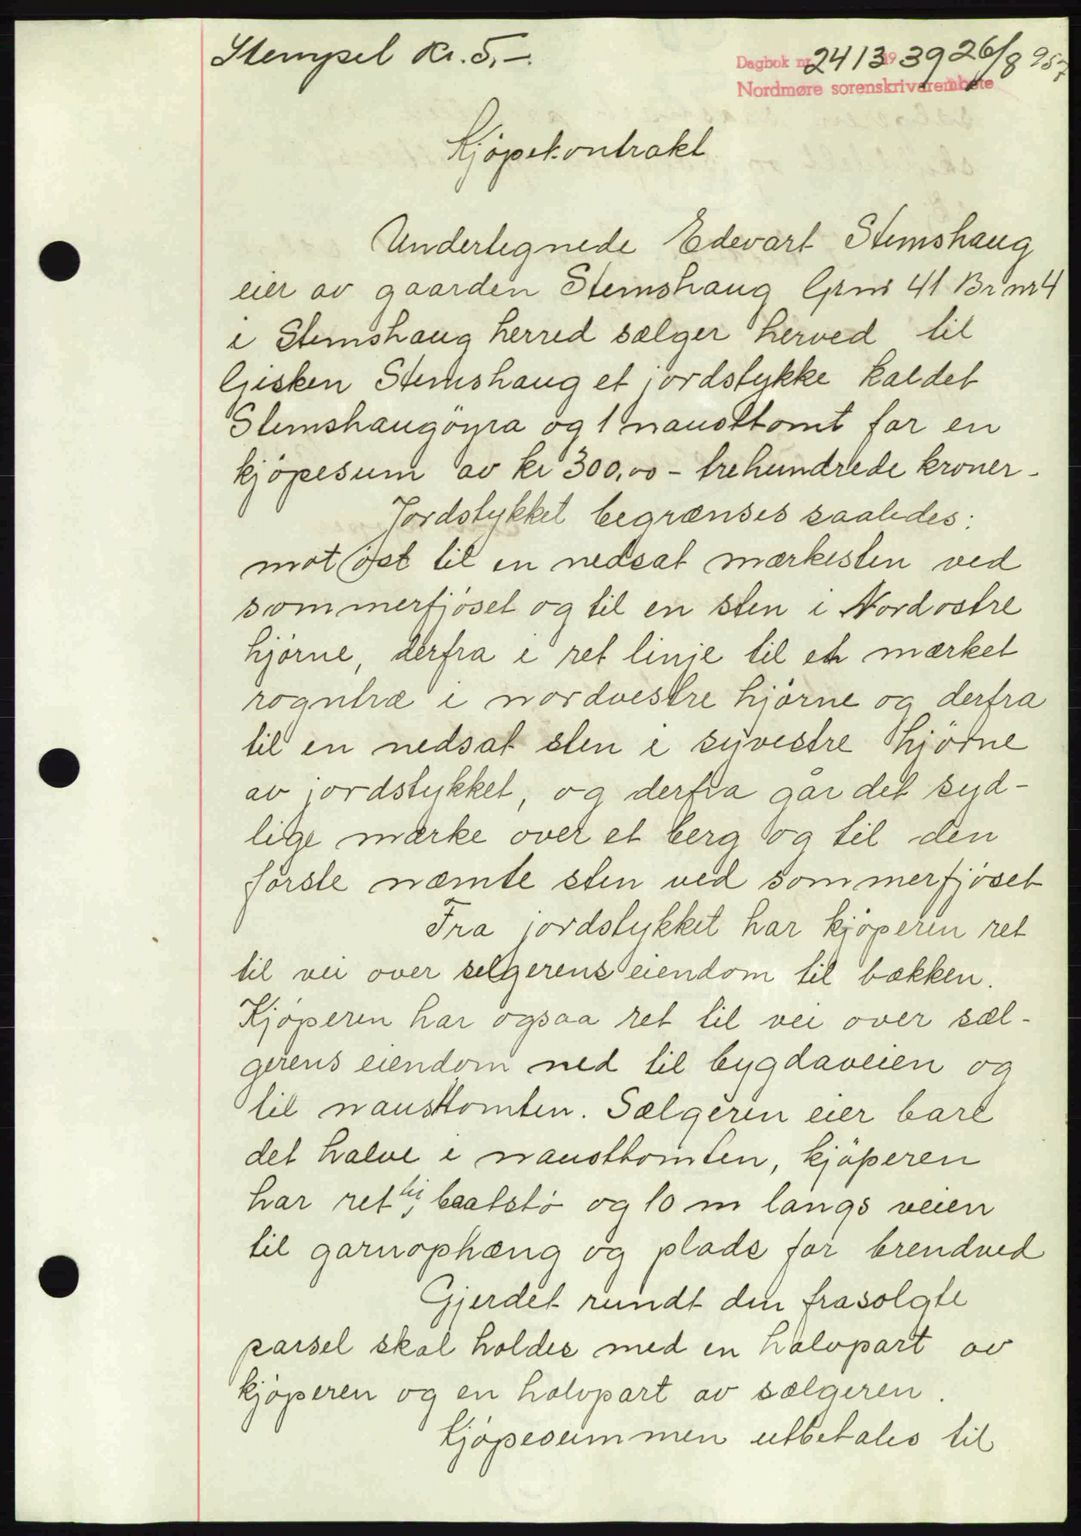 Stempel kr. 5,-.
Dagbok nr. 2413 19 39 26/8 957
Nordmøre sorenskriverembete
Kjøpekontrakt
Undertegnede Edevart Stemshaug
eier av gaarden Stemshaug Grnr 41 Br nr 4
i Stemshaug herred sælger herved til
Gisken Stemshaug et jordstykke kaldet
Stemshaugöyra og 1 nausttomt for en
kjöpesum av kr 300,00 - trehundrede kroner -
Jordstykket begrænses saaledes:
mot öst til en nedsat mærkesten ved
sommerfjöset og til en sten i Nordostre
hjörne, derfra i ret linje til et mærket
rogntræ i nordvestre hjörne og derfra
til en nedsat sten i syvestre hjörne
av jordstykket, og derfra går det syd-
lige mærke over et berg og til den
förste næmte sten ved sommerfjöset
Fra jordstykket har kjöperen ret
til vei over selgerens eiendom til bækken.
Kjöperen har ogsaa ret til vei over sæl-
gerens eiendom ned til bygdaveien og
til nausttomten. Sælgeren eier bare
det halve i nausttomten, kjöperen
har ret til baatstö og 10 m langs veien
til garnophæng og plads for brendved
Gjerdet rundt den frasolgte
parsel skal holdes med en halvpart av
kjöperen og en halvpart av sælgeren.
Kjöpesummen utbetales til